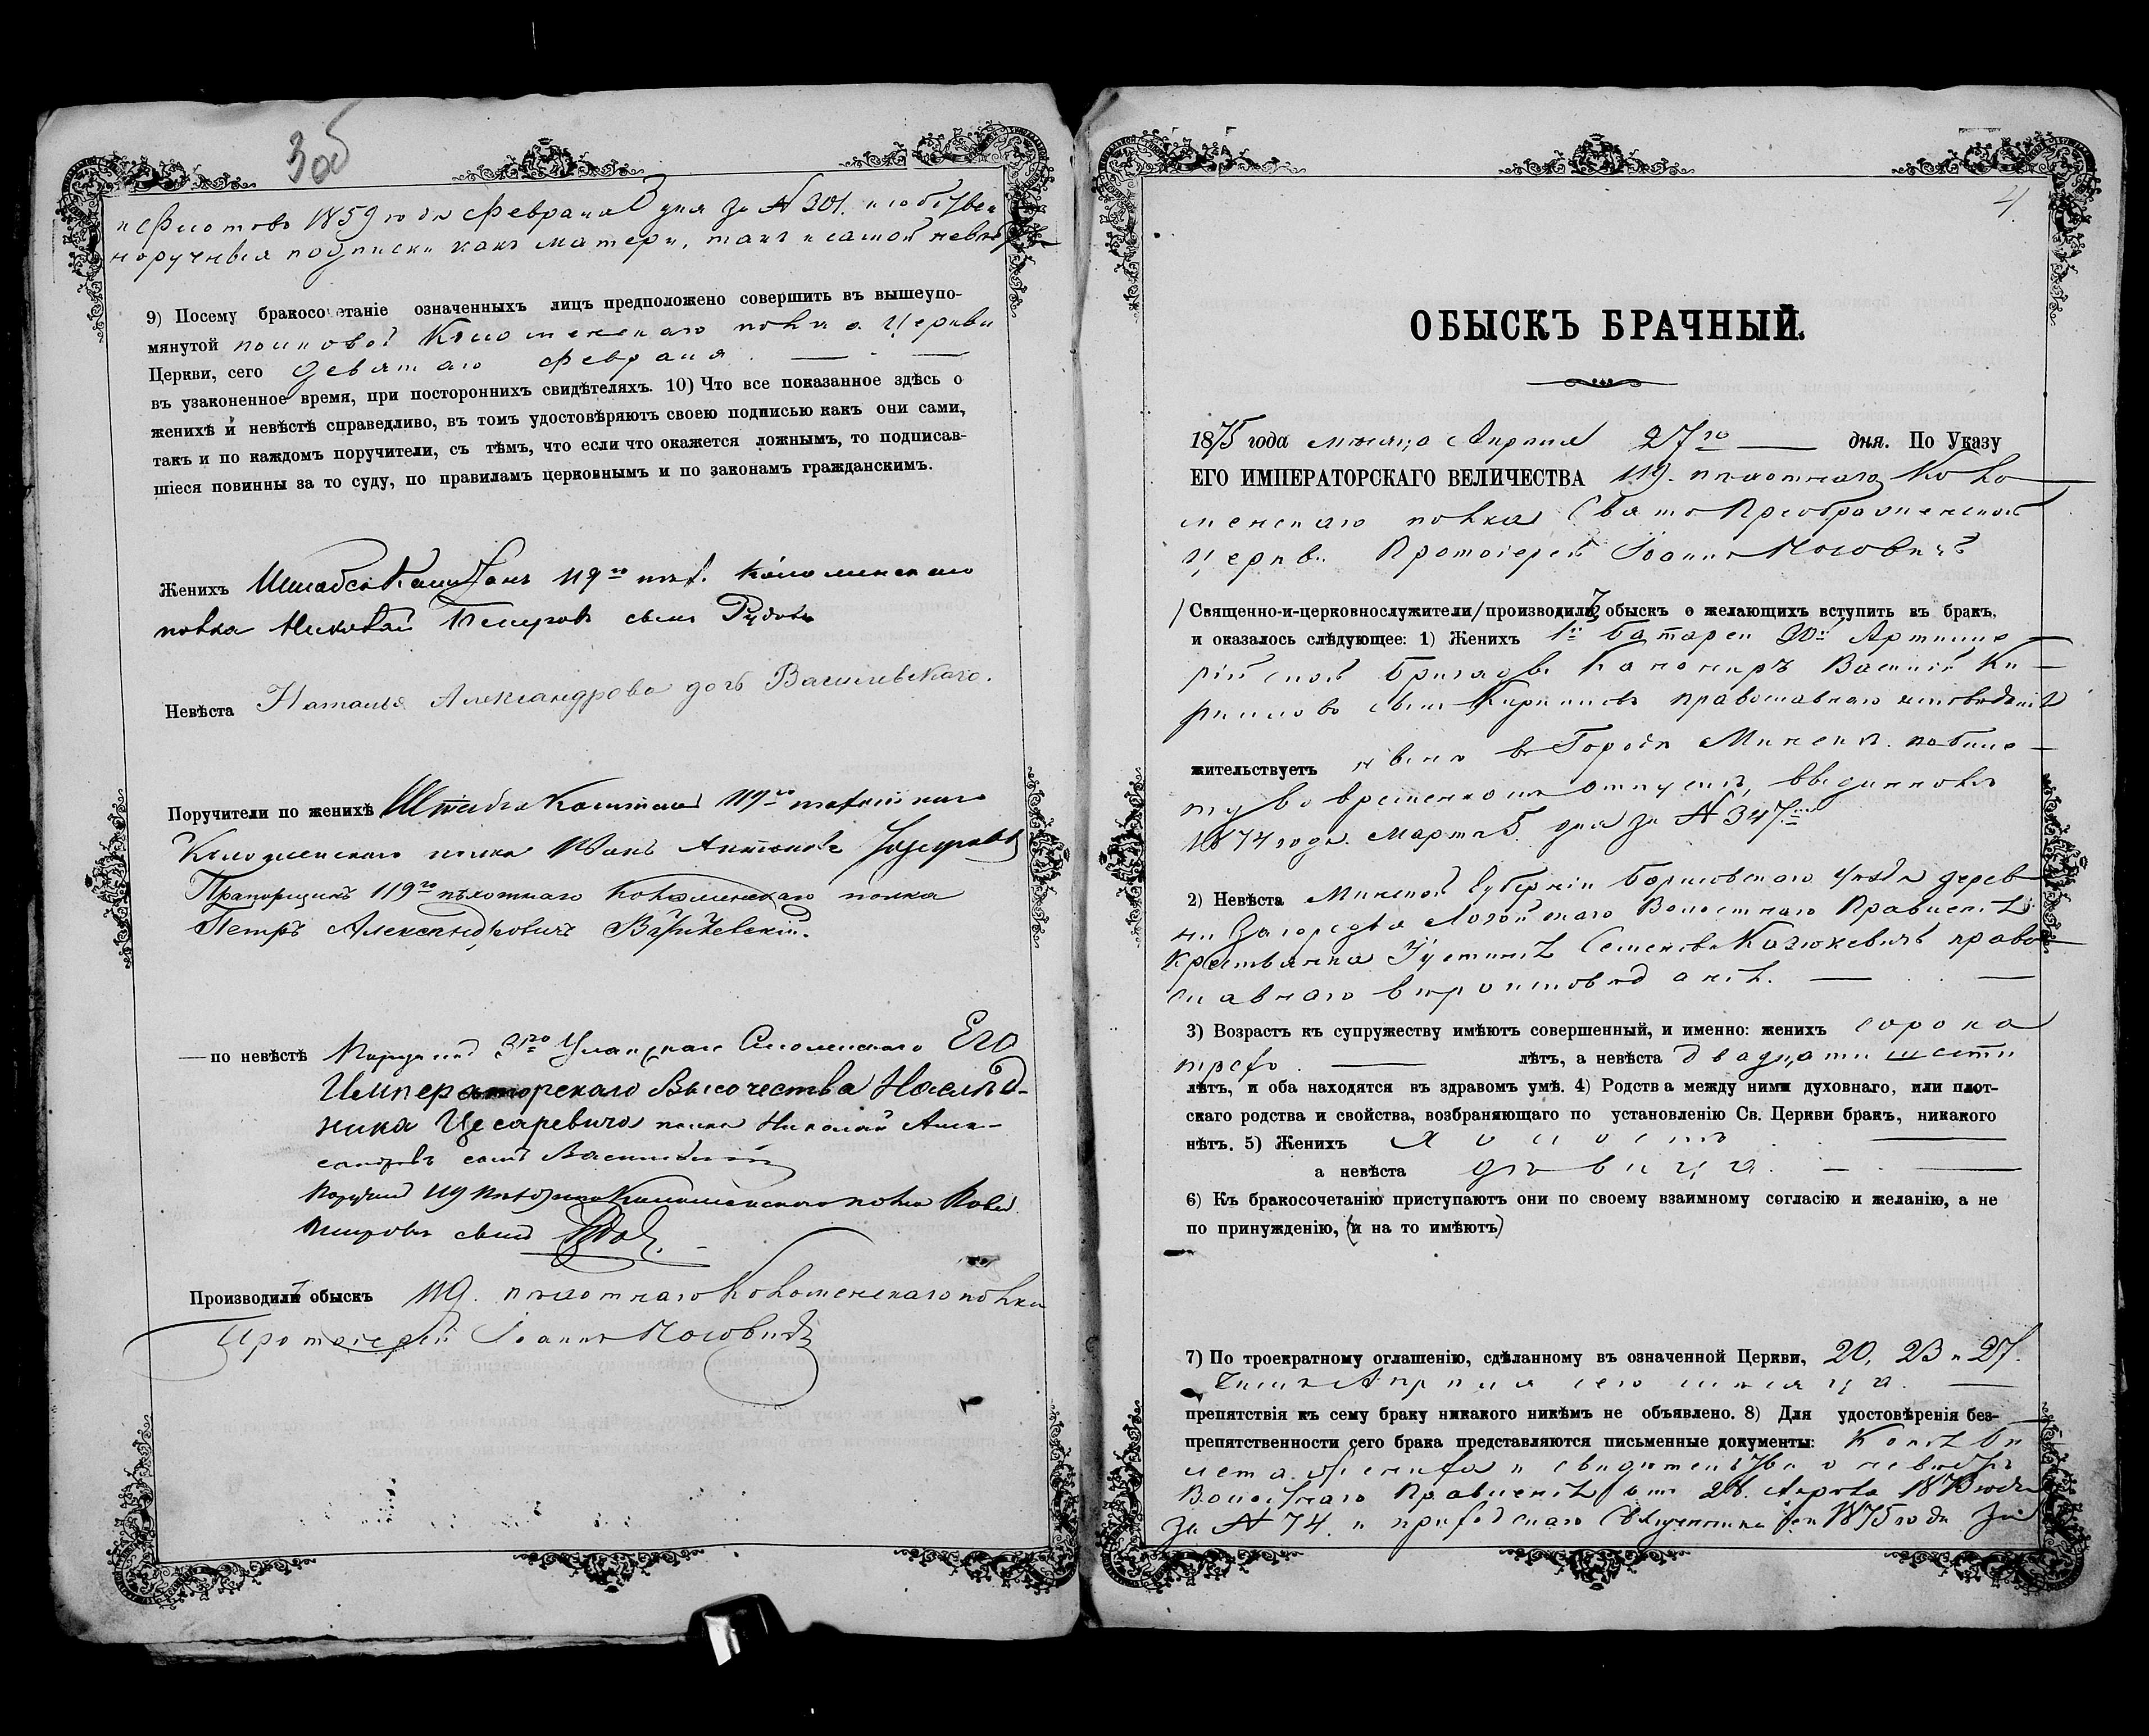 3об
1859 года Февраля 3 дня за № 301. и собствен
норучныя подписки какъ матери, такъ и самой невѣсты
9) Посему бракосочетаніе означенныхъ лицъ предположено совершить въ вышеупо-
мянутой полковой Коломенскаго полка Церкви
Церкви, сего девятаго Февраля
въ узаконенное время, при постороннихъ свидѣтеляхъ. 10) Что все показанное здѣсь о
женихѣ и невѣстѣ справедливо, въ томъ удостовѣряютъ своею подписью какъ они сами,
такъ и по каждомъ поручители, съ тѣмъ, что если что окажется ложнымъ, то подписав-
шіеся повинны за то суду, по правиламъ церковнымъ и по законамъ гражданскимъ.
Женихъ Штабсъ-Капитанъ 119го пѣх. Коломенскаго
полка Николай Петровъ сынъ
Невѣста Наталья Александрова дочь Васильевскаго.
Поручители по женихѣ Штабсъ Капитанъ 119го пѣхотнаго
Коломенскаго полка Иванъ Антоновъ
Прапорщикъ 119го пѣхотнаго Коломенскаго полка
Петръ Александровичъ
— по невѣстѣ 3го Уланскаго Смоленскаго Его
Императорскаго Высочества Наслѣд-
ника Цесаревича полка Николай Алек-
сандровъ сынъ
Поручикъ 119 пѣхотнаго Коломенскаго полка
Петровъ сынъ
Производилъ обыскъ 119. пѣхотнаго Коломенскаго полка
Протоіерей Іоаннъ
4.
ОБЫСКЪ БРАЧНЫЙ.
1875 года мѣсяца Апрѣля 27го дня. По Указу
ЕГО ИМПЕРАТОРСКАГО ВЕЛИЧЕСТВА 119. пѣхотнаго Коло
менскаго полка Свято Преображенской
Церкви Протоіерей Іоаннъ
/Священно-и-церковнослужители/ производилъ обыскъ о желающихъ вступить въ бракъ,
и оказалось слѣдующее: 1) Женихъ 1й батареи 30й Артилле
рійской бригады Канониръ Василій Ки-
рилловъ сынъ Кирилловъ православнаго исповѣданія
жительствуетъ нынѣ въ Городѣ Минскѣ. по биле-
ту во временномъ отпускѣ,
1874 года. Марта 5. дня за № 347мъ
2) Невѣста Минской Губерніи Борисовскаго уѣзда дерев
ни Логойскаго Волостнаго Правленія
Крестьянка Устинія Семенова Казюкевичъ право
славнаго вѣроисповѣданія.
3) Возрастъ къ супружеству имѣютъ совершенный, и именно: женихъ сорока
трехъ лѣтъ, а невѣста двадцати шести
лѣтъ, и оба находятся въ здравомъ умѣ. 4) Родства между ними духовнаго, или плот-
скаго родства и свойства, возбраняющаго по установленію Св. Церкви бракъ, никакого
нѣтъ. 5) Женихъ холостъ
а невѣста дѣвица.
6) Къ бракосочетанію приступаютъ они по своему взаимному согласію и желанію, а не
по принужденію, (и на то имѣютъ)
7) По троекратному оглашенію, сдѣланному въ означенной Церкви, 20, 23 и 27.
чиселъ Апрѣля сего мѣсяца.
препятствія къ сему браку никакого никѣмъ не объявлено. 8) Для удостовѣренія без-
препятственности сего брака представляются письменные документы: Копія би
лета жениха и свидетельства о невѣстѣ
Волостнаго Правленія отъ 28. Апрѣля года
за № 74. и приходскаго Священника 1875 года за